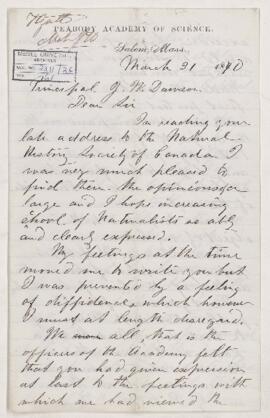 Hyatt
PEABODY ACADEMY OF SCIENCE.
Salem, Mass.
March 31 1870
Principal J. W. Dawson
Dear Sir
In reading your
late address to the Natural
History Society of Canada I
was very much pleased to
find there the opinions of a
large and I hope increasing
school of Naturalists so ably
and clearly expressed.
My feelings at the time
moved me to write you but
I was prevented by a feeling
of diffidence which however
I must at length disregard.
We all, that is the
officers of the Academy felt
that you had given expression
at last to the feelings with
which we had viewed the